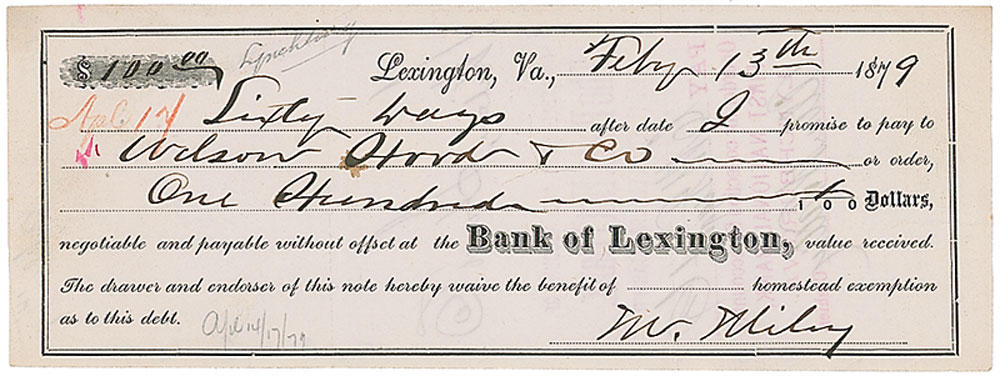 $100.00 Lynchburg Lexington, Va., Feby 13th 1879
Apl 17 Sixty days after date I promise to pay to
Wilson Hood & Co or order,
One Hundred 100 Dollars,
negotiable and payable without offset at the Bank of Lexington, value received.
The drawer and endorser of this note hereby waive the benefit of homestead exemption
as to this debt. Apl 14/17/79
M. Miley